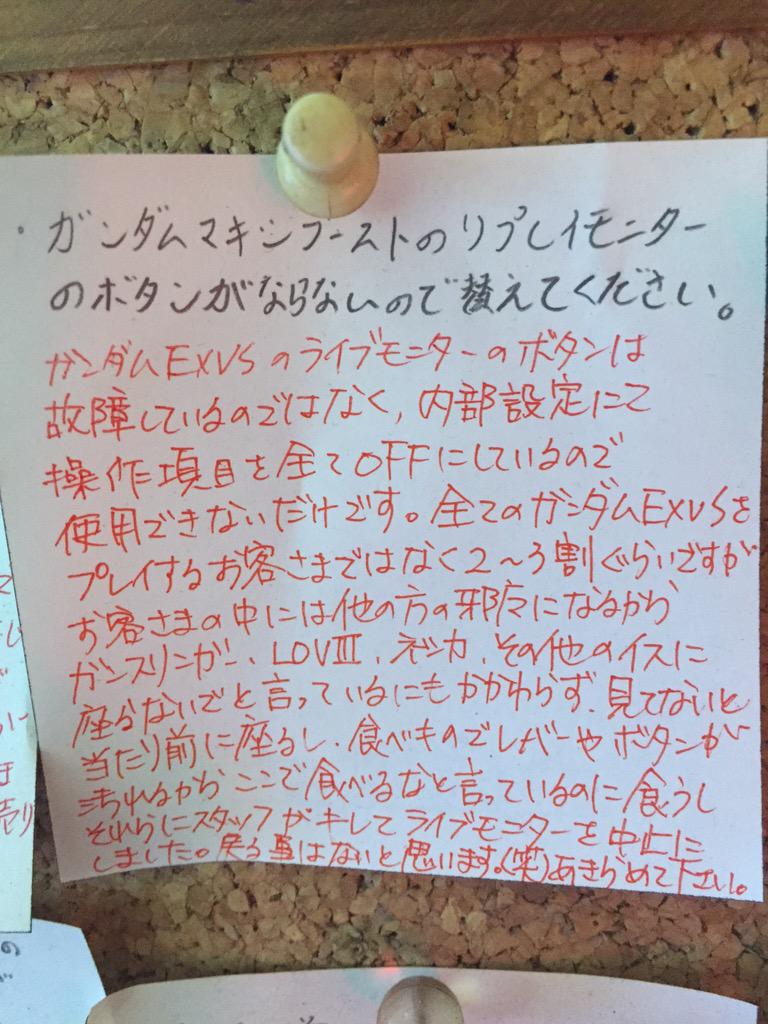 ・ガンダムマキシブーストのリプレイモニター
のボタンがならないので替えてください。
ガンダムEXVSのライブモニターのボタンは
故障しているのではなく、内部設定にて
操作項目を全てOFFにしているので
使用できないだけです。全てのガンダムEXVSを
プレイするお客さまではなく2〜3割ぐらいですが
お客さまの中には他の方の邪广になるから
ガンスリンガー、LOVIII、ネシカ、その他のイスに
座らないでと言っているにもかかわらず、見てないと
当たり前に座るし、食べものでレバーやボタンが
汚れるからここで食べるなと言っているのに食うし
それらにスタッフがキレてライブモニターを中止に
しました。戻る事はないと思います。(笑)あきらめて下さい。
売り
の